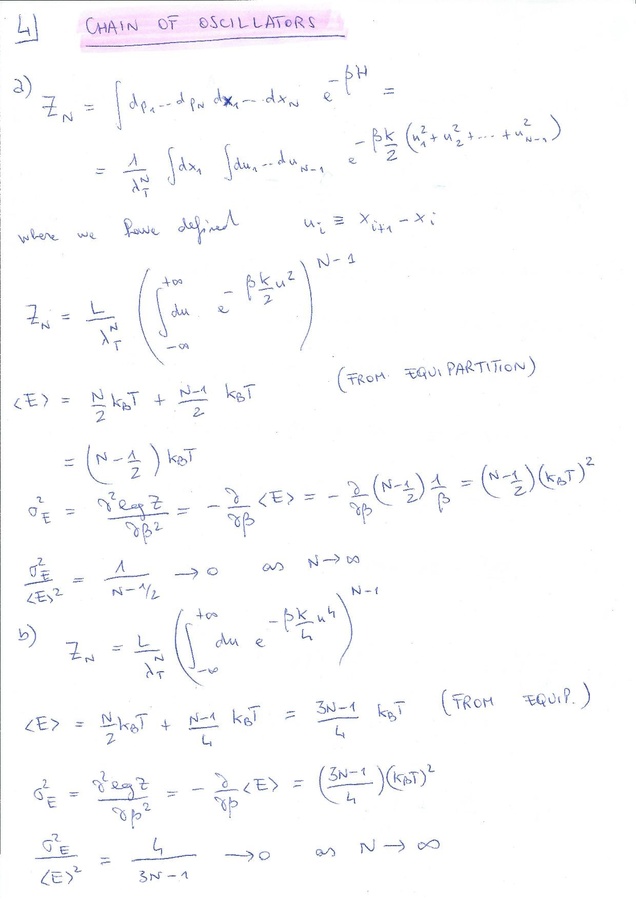 4] CHAIN OF OSCILLATORS
a) Z_N = ∫ dp_1 ... dp_N dx_1 ... dx_N e^{-βH} =
= 1/λ_T^N ∫ dx_1 ∫ du_1 ... du_{N-1} e^{-βk/2 (u_1^2 + u_2^2 + ... + u_{N-1}^2)}
where we have defined u_i ≡ x_{i+1} - x_i
Z_N = L/λ_T^N ( ∫_{-∞}^{+∞} du e^{-βk/2 u^2} )^{N-1}
<E> = N/2 k_BT + N-1/2 k_BT (FROM EQUIPARTITION)
= (N - 1/2) k_BT
σ_E^2 = ∂^2 log Z/∂β^2 = - ∂/∂β <E> = - ∂/∂β (N - 1/2) 1/β = (N - 1/2) (k_BT)^2
σ_E^2/<E>^2 = 1/N - 1/2 → 0 as N → ∞
b) Z_N = L/λ_T^N ( ∫_{-∞}^{+∞} du e^{-βk/4 u^4} )^{N-1}
<E> = N/2 k_BT + N-1/4 k_BT = 3N-1/4 k_BT (FROM EQUIP.)
σ_E^2 = ∂^2 log Z/∂β^2 = - ∂/∂β <E> = (3N-1/4) (k_BT)^2
σ_E^2/<E>^2 = 4/3N-1 → 0 as N → ∞